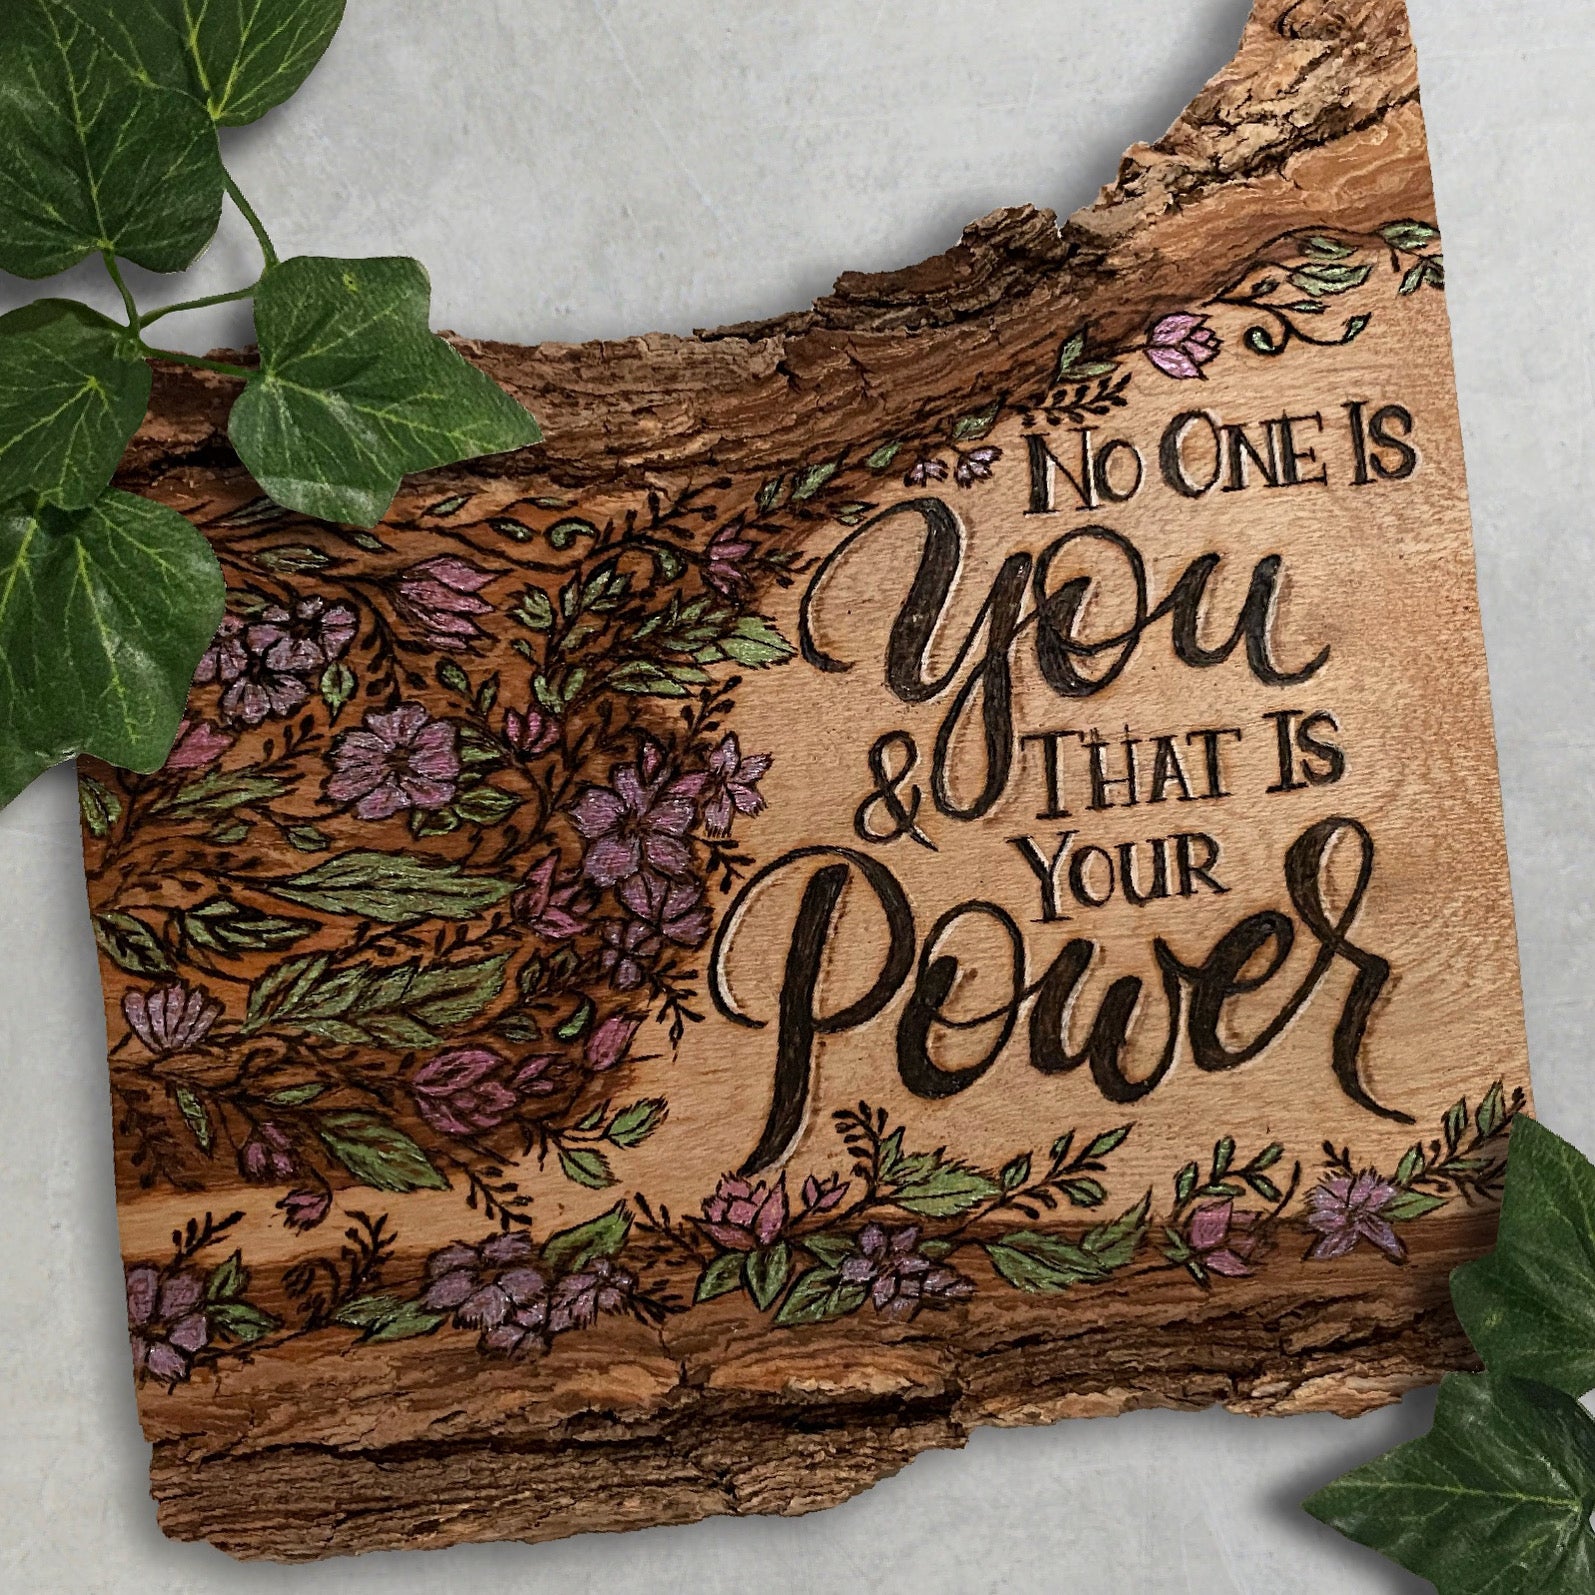 No One Is
You
& That Is
Your
Power